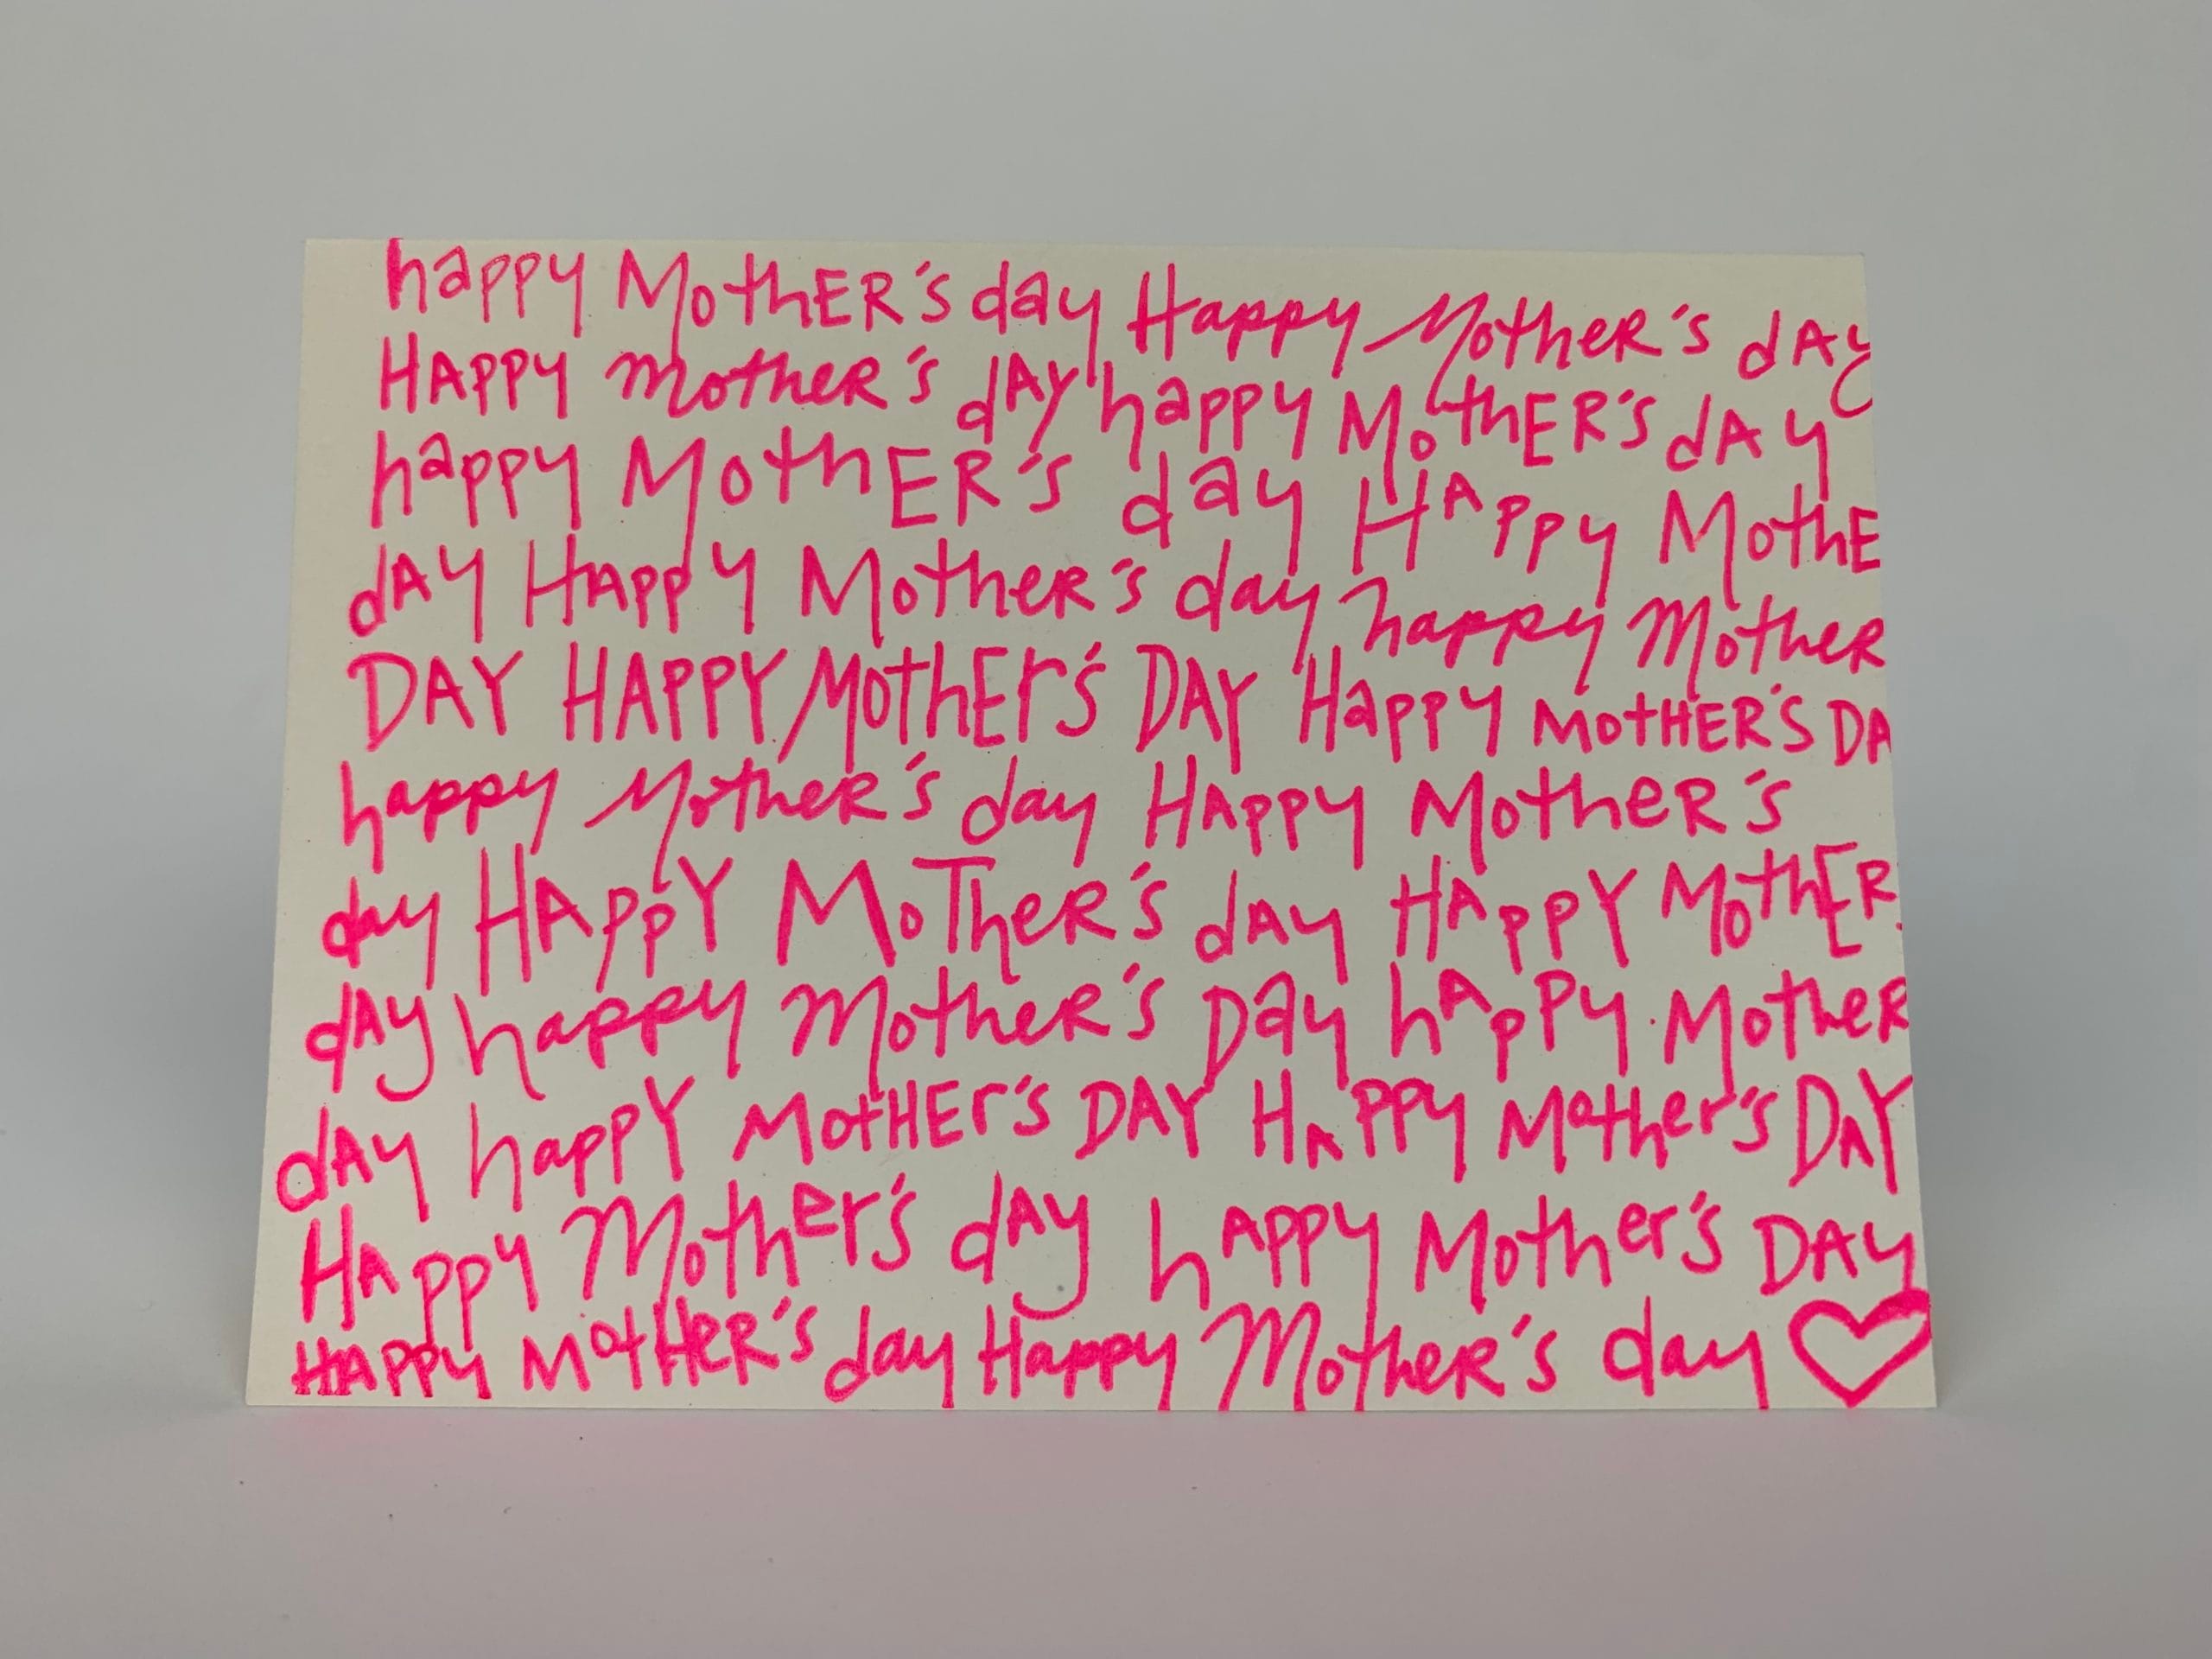 happy MothER's day Happy Mother's dAy
HAppy mother's dAy happy MothER's dAy
happy MothER's day HAppy MothE
dAy HAppy Mother's day happy Mother
DAY HAPPY MothEr's DAY Happy MotHER'S DA
happy Mother's day HAppy Mother's
day HAppY MoTher's dAy HAppY MothER
dAy happy Mother's Day hAppy Mother
dAy happY MotHEr's DAY HAppy Mother's DAY
HAppy Mother's dAy hAppy Mother's DAy
HAppy MotHeR's day Happy Mother's day